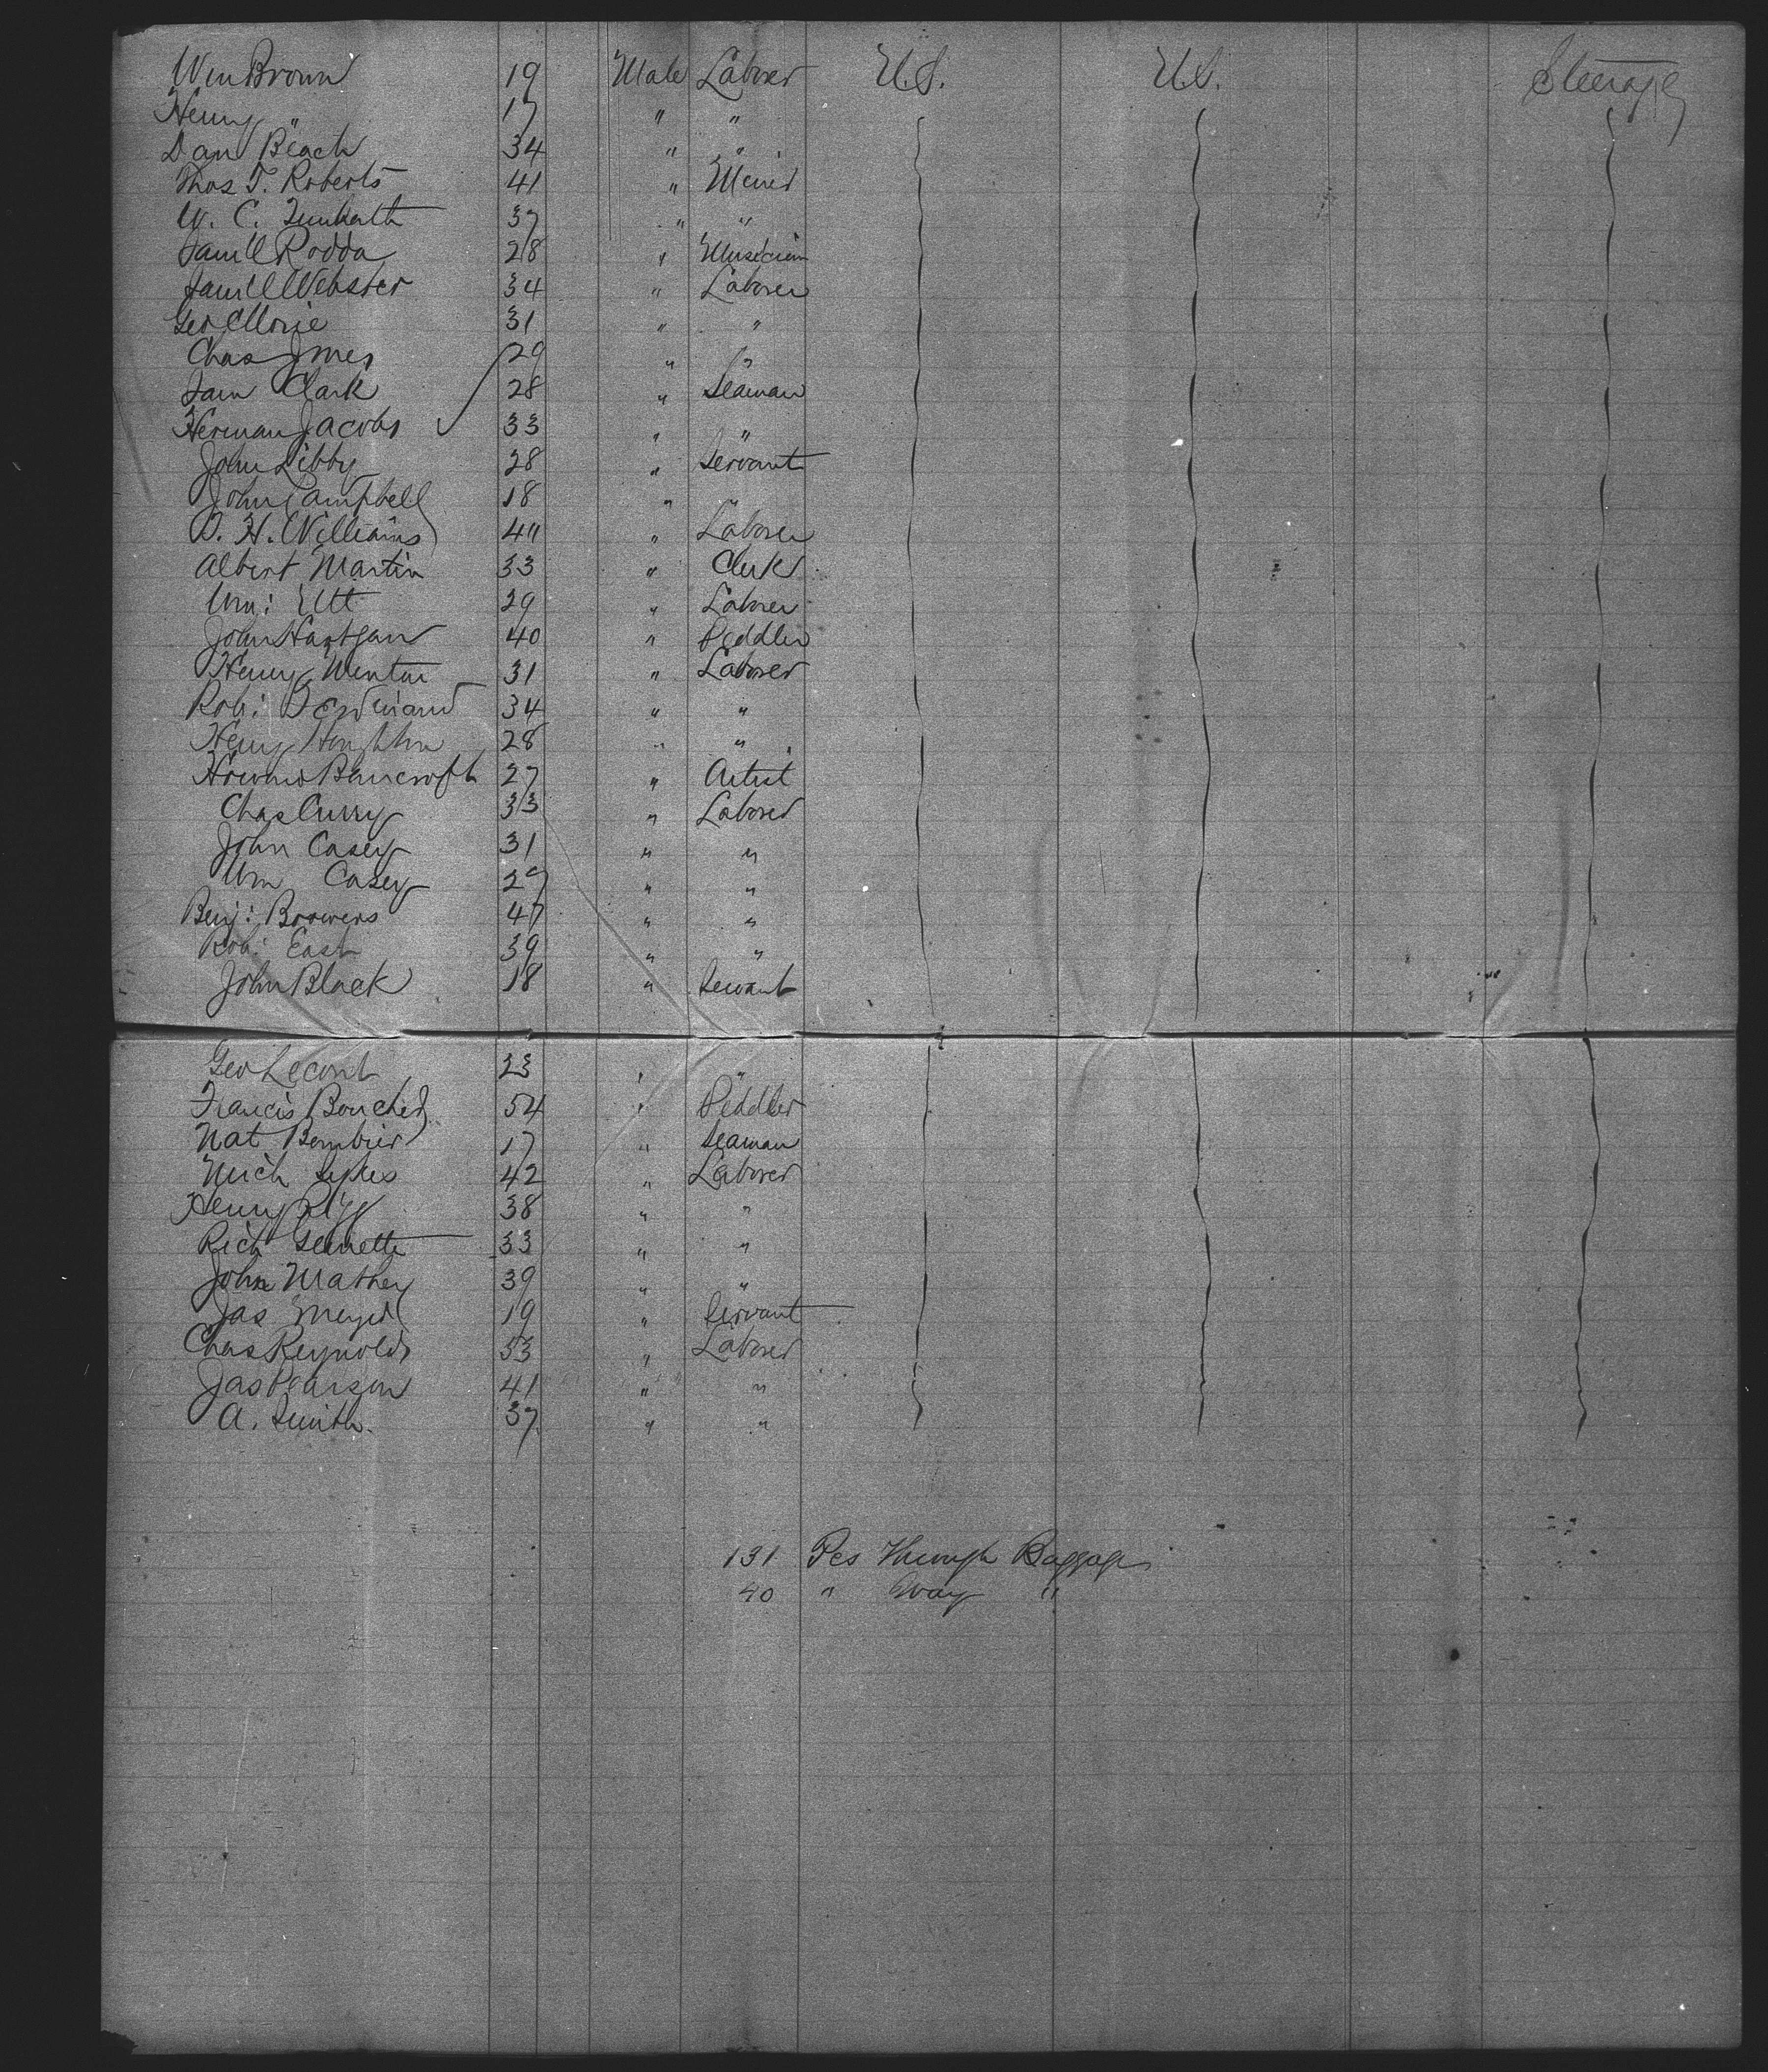 Wm Brown 19 Male Laborer U.S. U.S. Steerage
Henry " 17 " "
Dan Beach 34 " "
Thos T. Roberts 41 " Miner
W. C. 37 " "
Saml Rodda 28 " Musician
Saml Webster 34 " Laborer
Geo 31 " "
Chas Jones 29 " "
Sam Clark 28 " Seaman
Herman Jacobs ✓ 33 " "
John Libby 28 " Servant
John Campbell 18 " "
D. H. Williams 40 " Laborer
Albert Martin 33 " Clerk
Wm: Utt 29 " Laborer
John Hartgan 40 " Peddler
Henry Winter 31 " Laborer
Rob: Ferdinand 34 " "
Henry Houghton 28 " "
Howard Bancroft 27 " Artist
Chas Curry 33 " Laborer
John Casey 31 " "
Wm Casey 27 " "
Benj: Browers 47 " "
Rob: East 39 " "
John Black 18 " Servant
Geo Lecont 23 " "
Francis Boucher 54 " Peddler
Nat 17 " Seaman
Mich Sykes 42 " Laborer
Henry Rigg 38 " "
Rich 33 " "
John Mather 39 " "
Jas Meyer 19 " Servant
Chas Reynolds 33 " Laborer
Jas Pearson 41 " "
A. Smith. 37 " "
131 Pcs Through Baggage
40 " Way "